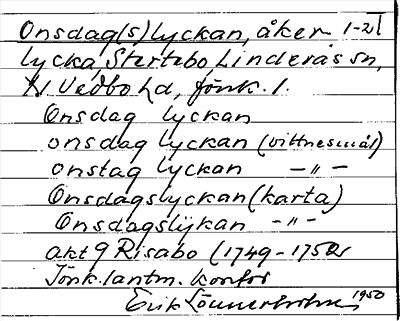 Onsdag(s)lyckan, åker 1-2
lycka, Stertebo Linderås sn,
N. Vedbo hd, Jönk. l.
Onsdag lyckan
onsdag lyckan (vittnesmål)
onstag lyckan —"—
Onsdagslyckan (karta)
Onsdagslÿkan —"—
akt 9 Risabo (1749-1752)
Jönk. lantm. kontor
Erik Lönnerholm, 1950